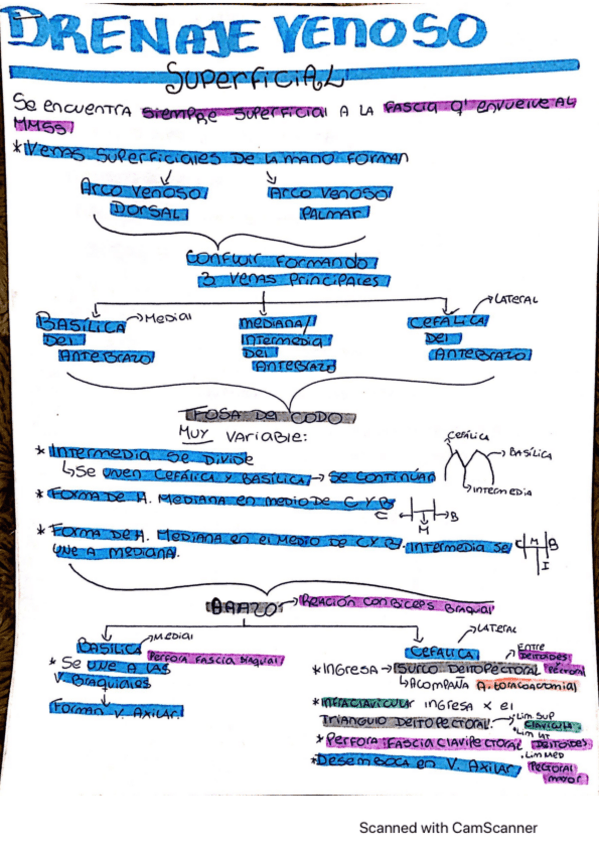 DRENAJE VENOSO
SUPERFICIAL
Se encuentra siempre superficial a la fascia q' envuelve al
MMSS
* Venas superficiales de la mano forman
Arco venoso dorsal
Arco venoso palmar
Confluir formando
3 venas principales
Basílica del antebrazo → Medial
mediana/intermedia del antebrazo
Cefálica del antebrazo → LATERAL
Fosa del codo
Muy variable:
* Intermedia se divide
↳ Se unen cefálica y basílica → se continúan
Cefálica
→ Basílica
↳ Intermedia
* Forma de H. Mediana en medio de C y B
C ← → B
M
* Forma de H. Mediana en el medio de C y B. Intermedia se
une a mediana.
C M B
I
BRAZO → Relación con bíceps braquial
Basílica → Medial
Perfora fascia braquial
* Se une a las
v. braquiales
Forman v. axilar
Cefálica → LATERAL
* Ingresa → Surco deltopectoral
Entre deltoides pectoral
↳ Acompaña A. toracoacromial
* Infraclavicular ingresa x el
triángulo deltopectoral.
Lim sup clavícula
Lim lat deltoides
Lim med pectoral mayor
* Perfora: fascia clavipectoral
* Desemboca en v. axilar
Scanned with CamScanner